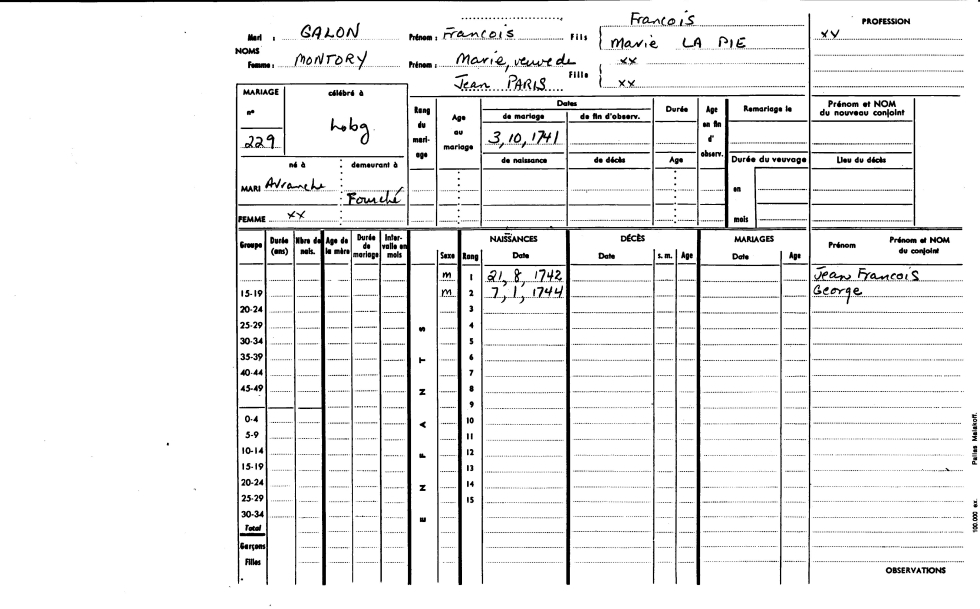 François
Mari : GALON Prénom : François Fils Marie LA PIE PROFESSION
xx
NOMS
Femme : MONTORY Prénom : Marie, veuve de xx
Jean PARIS Fille xx
MARIAGE célébré à Rang du mari- age Age au mariage Dates Durée Age en fin d' observ. Remariage le Prénom et NOM du nouveau conjoint
n° de mariage de fin d'observ.
229 Lobg 3, 10, 1741
né à demeurant à de naissance de décès Age Durée du veuvage Lieu du décès
MARI Avranche Fouché en
FEMME xx mois
Groupe Durée (ans) Nbre de nais. Age de la mère Durée de mariage Inter- valle en mois Sexe Rang NAISSANCES Date DÉCÈS Date s. m. Age MARIAGES Date Age Prénom Prénom et NOM du conjoint
m 1 21, 8, 1742 Jean François
15-19 m 2 7, 1, 1744 George
20-24 3
25-29 S 4
30-34 5
35-39 T 6
40-44 7
45-49 N 8
9
0-4 A 10
5-9 11
10-14 F 12
15-19 13
20-24 N 14
25-29 15
30-34 E
Total
Garçons
Filles
OBSERVATIONS
100.000 ex. Pailles Malakoff.